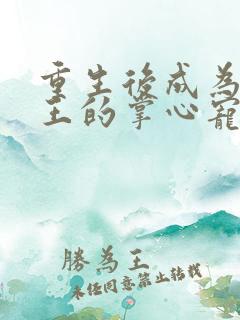 重生後成為
王的掌心寵
勝為王
未經同意禁止轉載